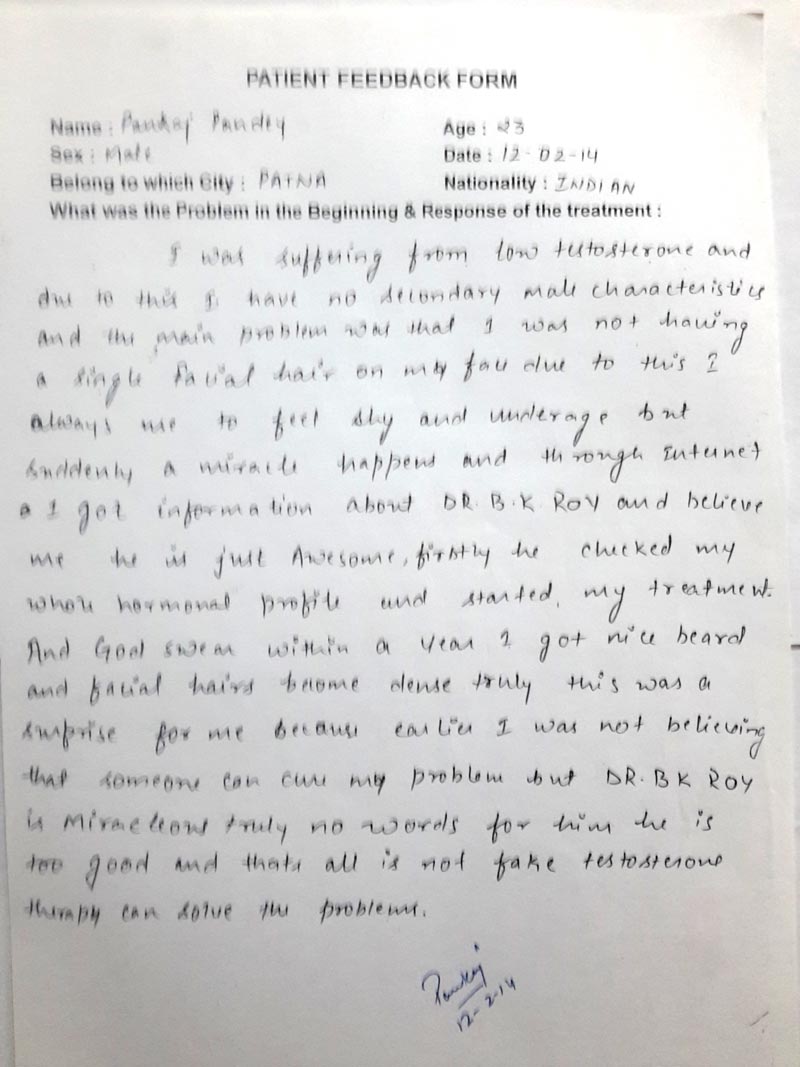 PATIENT FEEDBACK FORM
Name : Pankaj Pandey
Age : 23
Sex : Male
Date : 12-02-14
Belong to which City : PATNA
Nationality : INDIAN
What was the Problem in the Beginning & Response of the treatment :
I was suffering from low testosterone and
due to this I have no secondary male characteristics
and the main problem was that I was not having
a single facial hair on my face due to this I
always use to feel shy and underage but
suddenly a miracle happens and through Internet
a I got information about DR. B. K. ROY and believe
me he is just Awesome, firstly he checked my
whole hormonal profile and started my treatment.
And God swear within a year I got nice beard
and facial hairs become dense truly this was a
surprise for me because earlier I was not believing
that someone can cure my problem but DR. B K ROY
is Miracleous truly no words for him he is
too good and thats all is not fake testosterone
therapy can solve the problems.
Pankaj
12-2-14